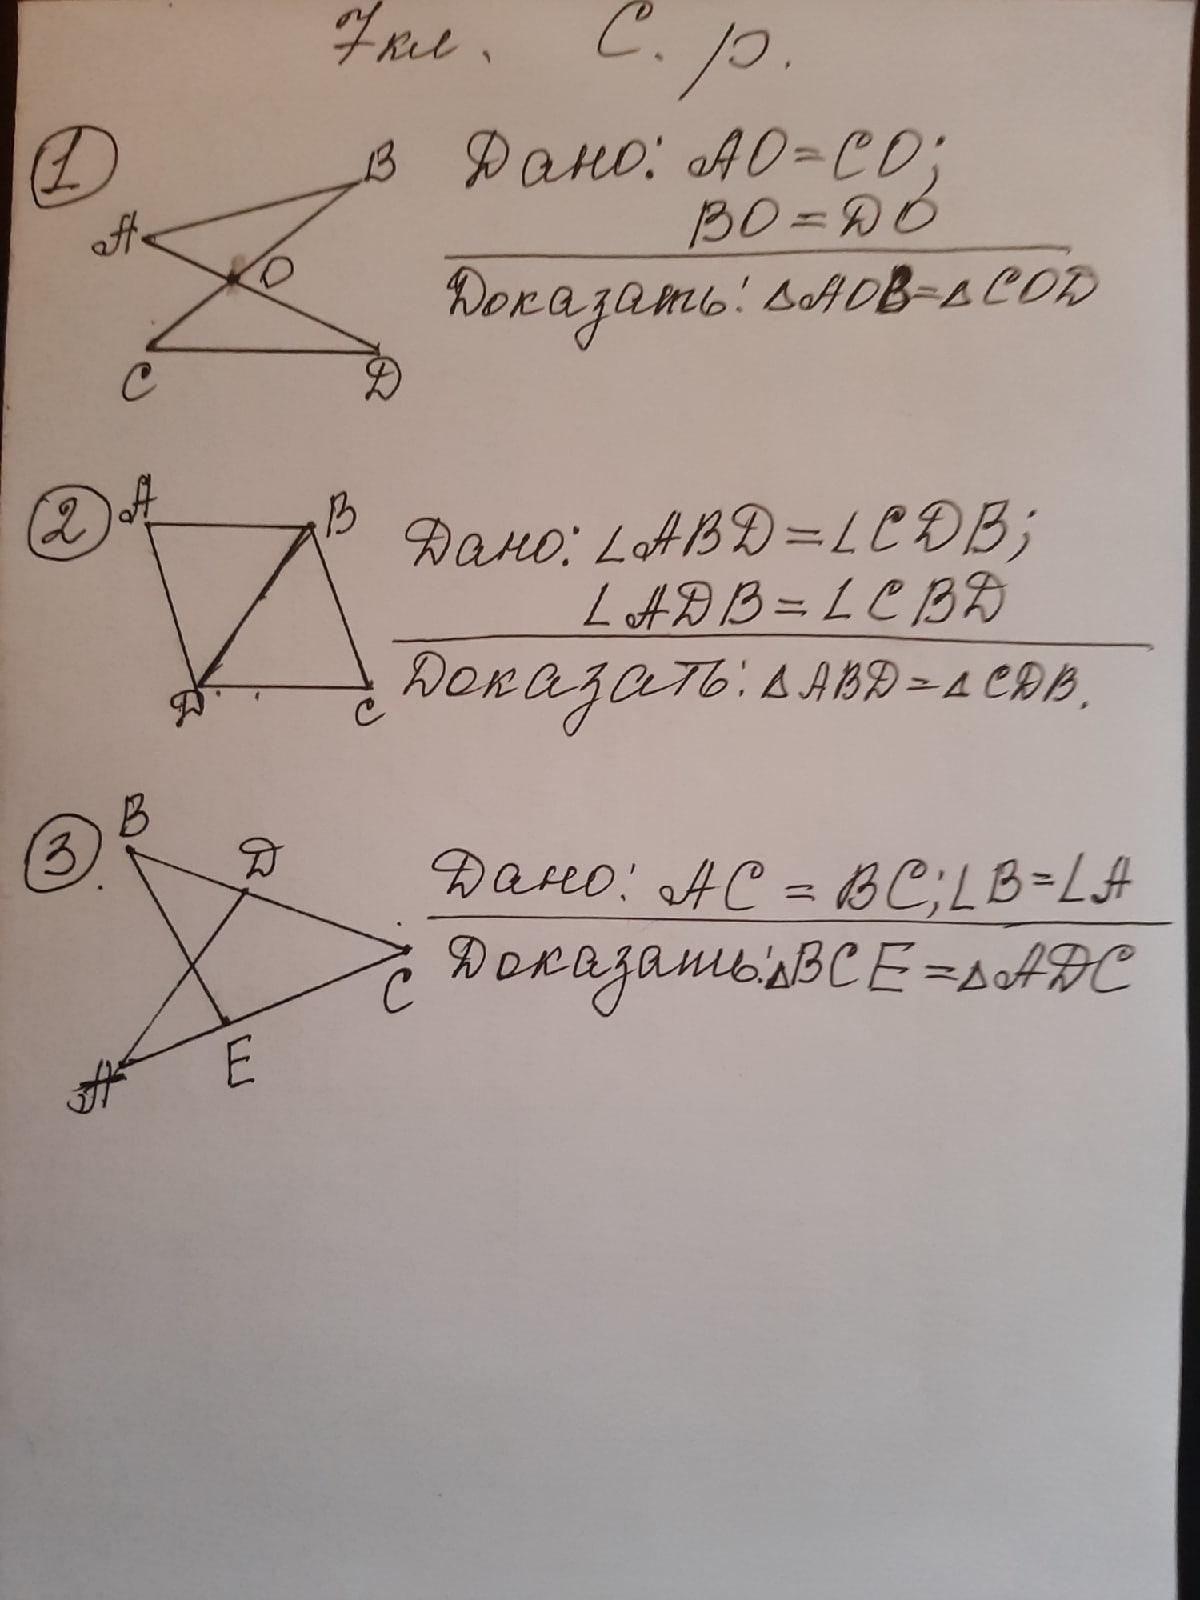 7 кл. С. р.
1
B
A
O
C
D
Дано: AO = CO;
BO = DO
Доказать: △AOB = △COD
2
A
B
D
C
Дано: ∠ABD = ∠CDB;
∠ADB = ∠CBD
Доказать: △ABD = △CDB.
3.
B
D
C
E
A
Дано: AC = BC; ∠B = ∠A
Доказать: △BCE = △ADC